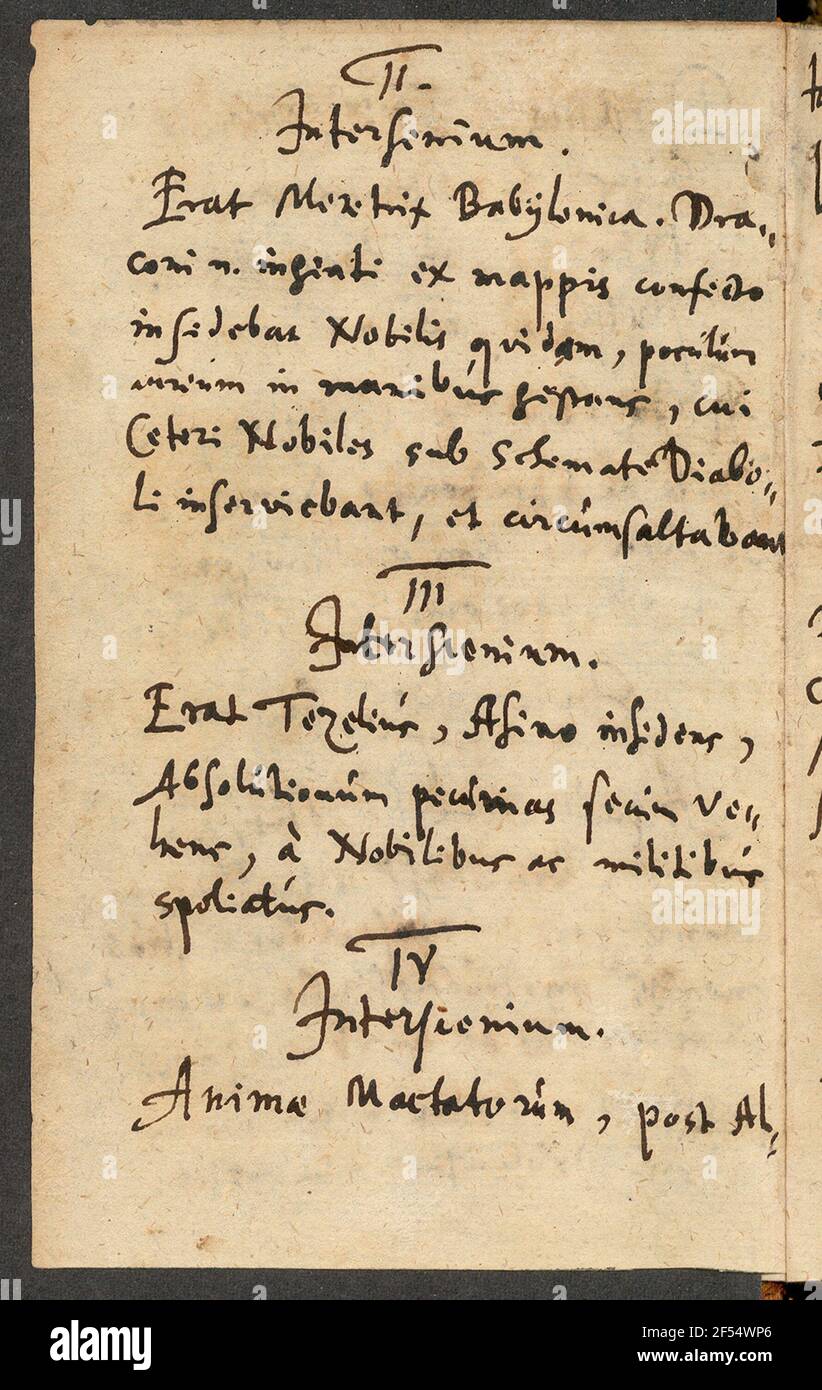 II.
Intersenium.
Erat Meretrix Babylonica. Dra=
coni n. inhianti ex mappis confecto
insidebat Nobilis quidam, poculum
aureum in manibus gestans, cui
Ceteri Nobiles sub Schemate Diabo=
li inserviebant, et circumsaltabant
III
Interscenium.
Erat Tezelius, Asino insidens,
Absolutionum pecunias secum Ve=
hens, à Nobilibus ac militibus
spoliatus.
IV
Interscenium.
Animæ Mactatorum, post Ab=
alamy
alamy
Image ID: 2F54WP6
www.alamy.com